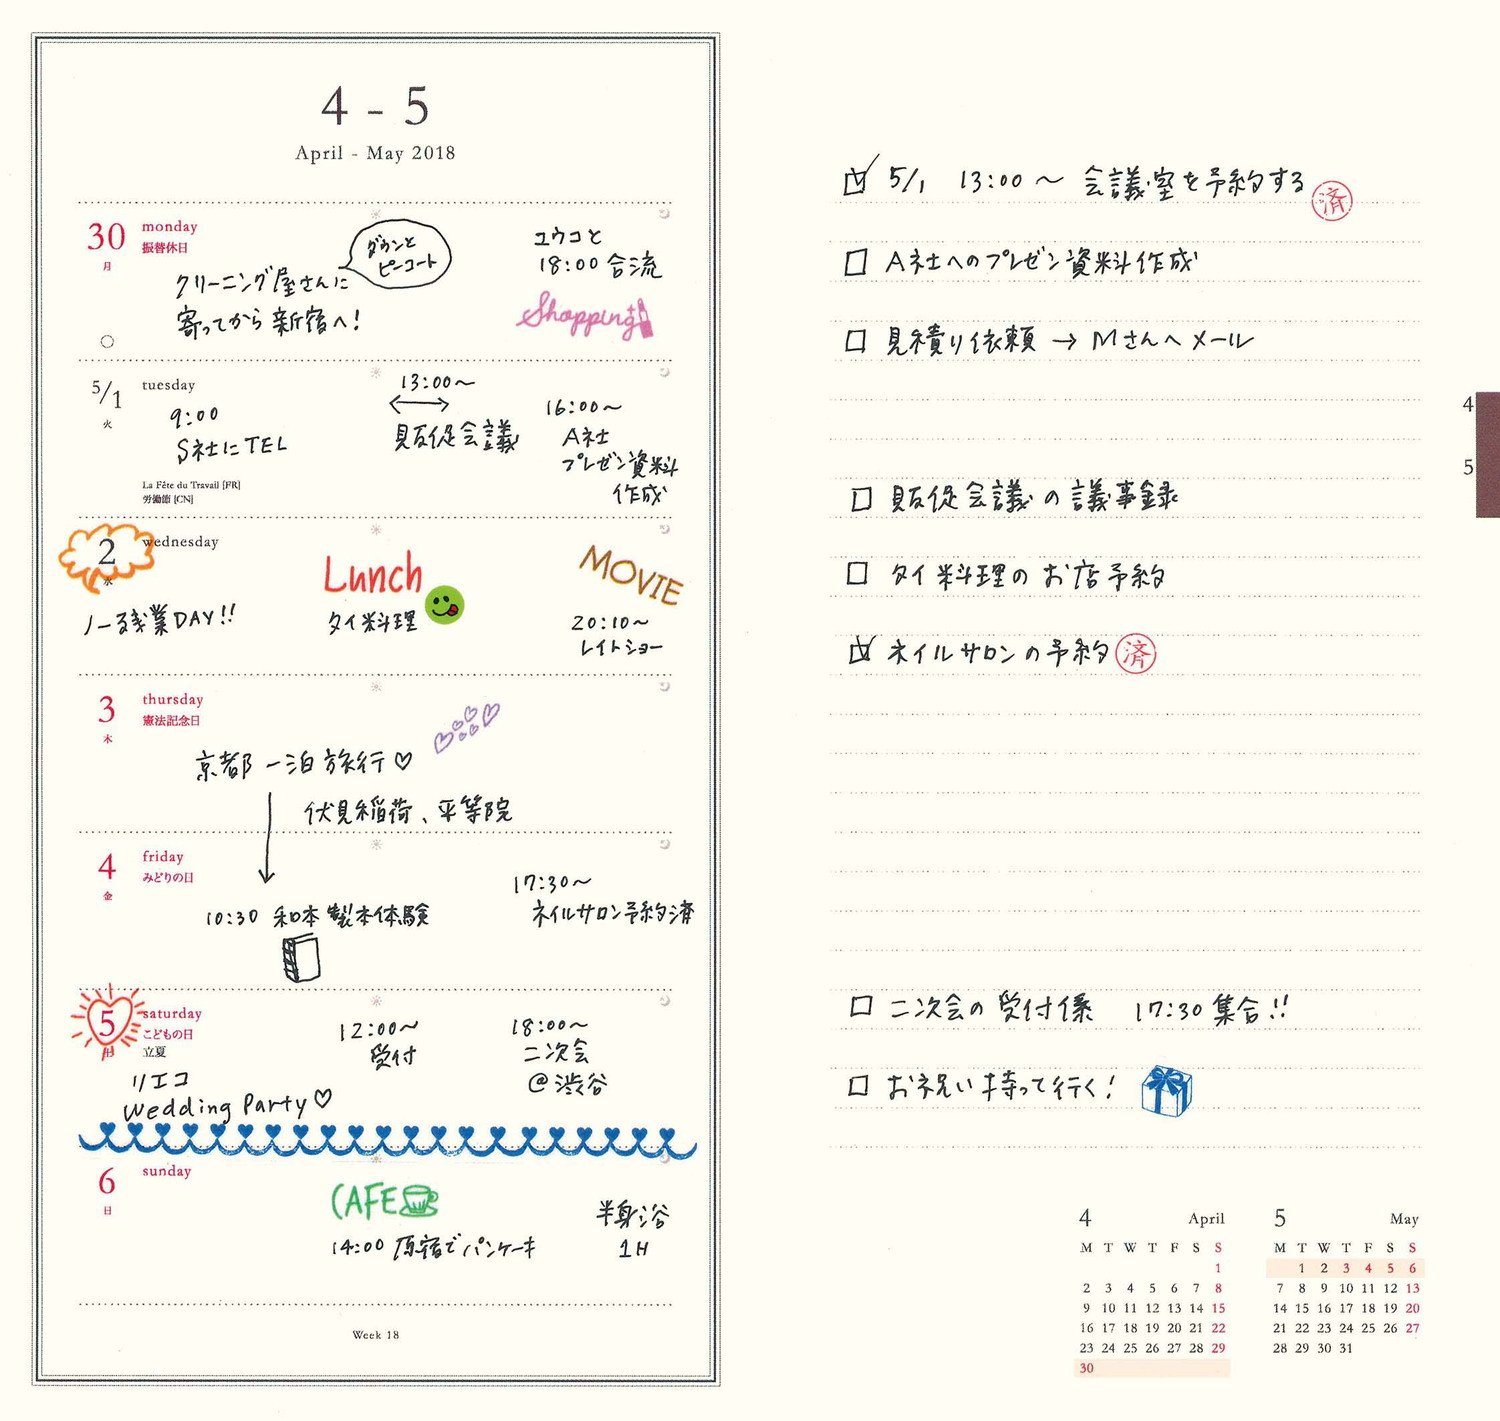 4 - 5
April - May 2018
30
月
monday
振替休日
ダウンと
ピーコート
クリーニング屋さんに
寄ってから新宿へ!
ユウコと
18:00 合流
Shopping
5/1
火
tuesday
9:00
S社にTEL
La Fête du Travail [FR]
労働節 [CN]
13:00〜
販促会議
16:00〜
A社
プレゼン資料
作成
2
水
wednesday
ノー残業DAY!!
Lunch
タイ料理
MOVIE
20:10〜
レイトショー
3
木
thursday
憲法記念日
京都一泊旅行♡
伏見稲荷、平等院
4
金
friday
みどりの日
10:30 和本製本体験
17:30〜
ネイルサロン予約済
5
土
saturday
こどもの日
立夏
リエコ
Wedding Party♡
12:00〜
受付
18:00〜
二次会
@渋谷
6
日
sunday
CAFE
14:00 原宿でパンケーキ
半身浴
1H
Week 18
5/1 13:00〜 会議室を予約する 済
A社へのプレゼン資料作成
見積り依頼 → Mさんへメール
販促会議の議事録
タイ料理のお店予約
ネイルサロンの予約 済
二次会の受付係 17:30集合!!
お祝い持って行く!
4
5
4 April
M T W T F S S
1
2 3 4 5 6 7 8
9 10 11 12 13 14 15
16 17 18 19 20 21 22
23 24 25 26 27 28 29
30
5 May
M T W T F S S
1 2 3 4 5 6
7 8 9 10 11 12 13
14 15 16 17 18 19 20
21 22 23 24 25 26 27
28 29 30 31